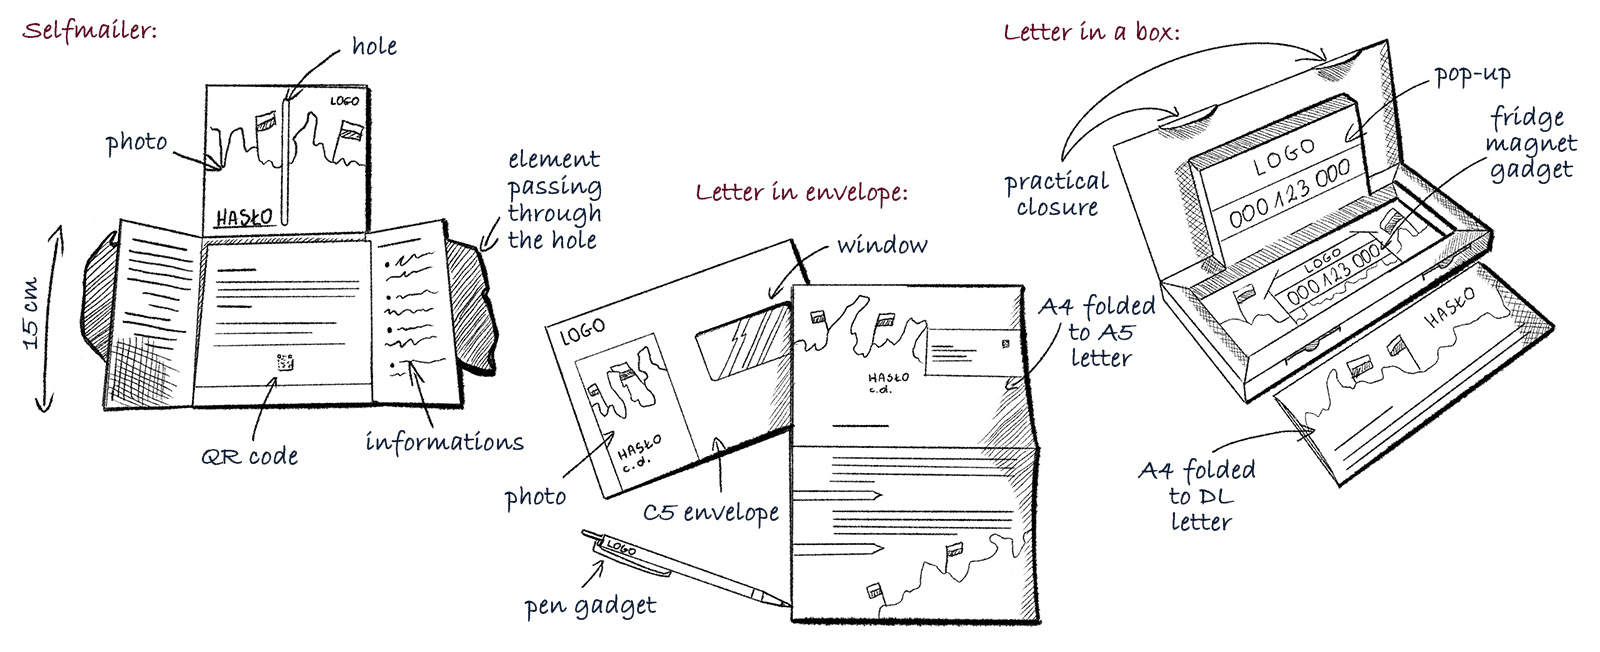 Selfmailer:
hole
LOGO
photo
HASŁO
element
passing
through
the hole
15 cm
QR code
informations
Letter in envelope:
window
LOGO
HASŁO
c.d.
photo
C5 envelope
LOGO
pen gadget
HASŁO
c.d.
A4 folded
to A5
letter
Letter in a box:
pop-up
fridge
magnet
gadget
practical
closure
LOGO
000 123 000
LOGO
000 123 000
HASŁO
A4 folded
to DL
letter